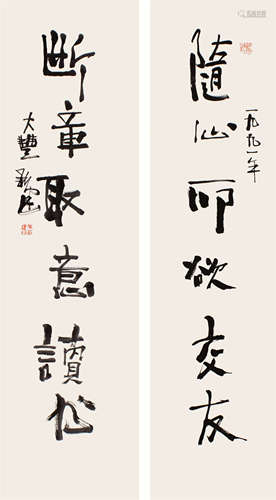 隨心所欲交友
一九九一年
斷章取意讀书
大豐